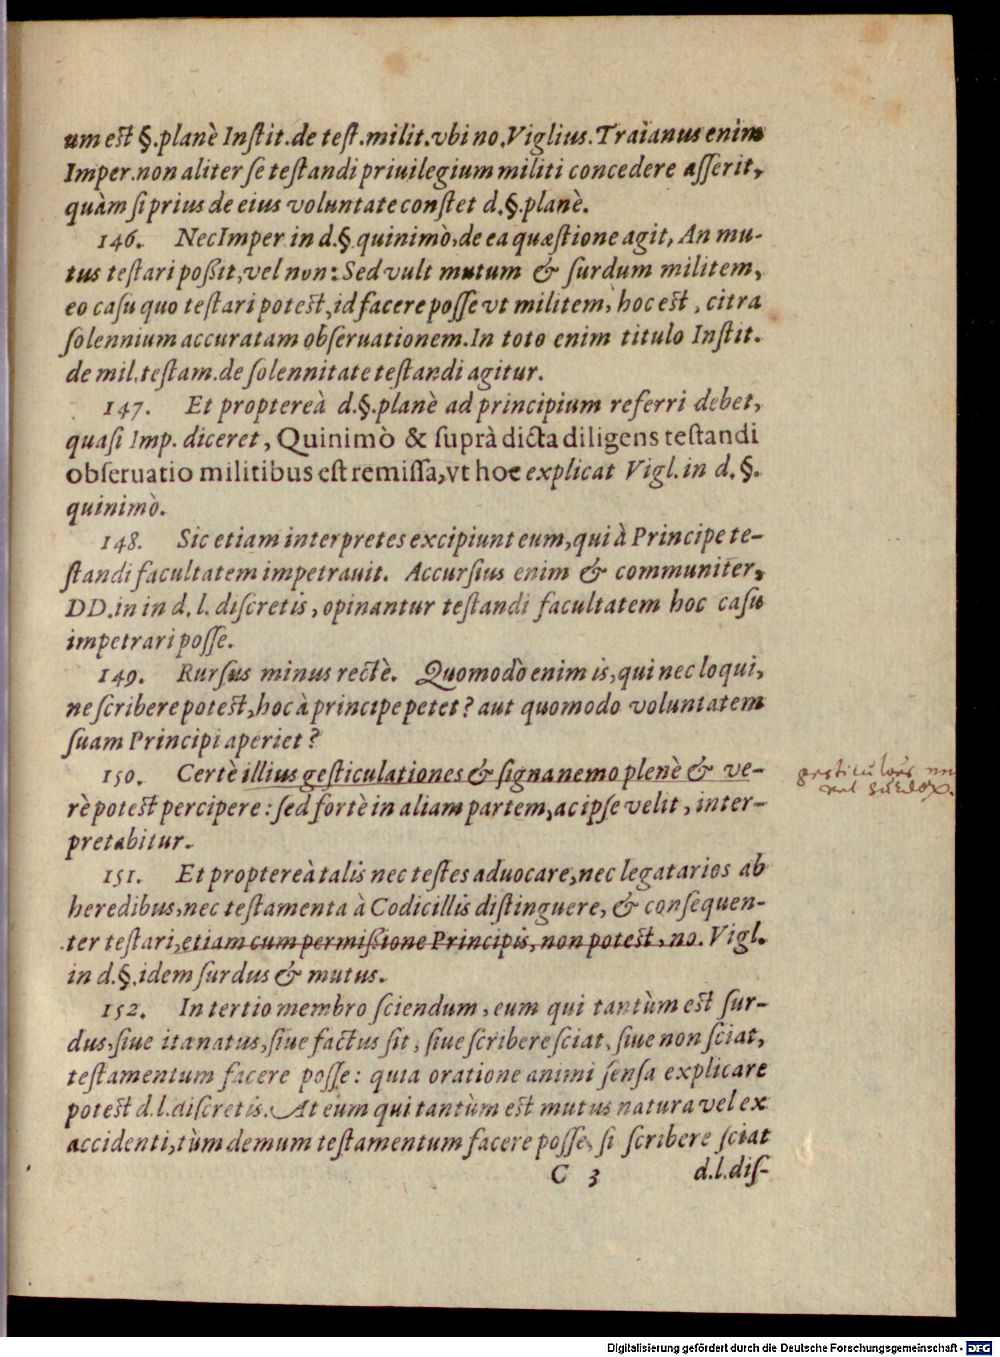 um est §. planè Instit. de test. milit. vbi no. Viglius. Traianus enim
Imper. non aliter se testandi priuilegium militi concedere asserit,
quàm si prius de eius voluntate constet d. §. planè.
146. Nec Imper. in d. §. quinimò, de ea quæstione agit, An mu-
tus testari poßit, vel non: Sed vult mutum & surdum militem,
eo casu quo testari potest, id facere posse vt militem, hoc est, citra
solennium accuratam obseruationem. In toto enim titulo Instit.
de mil. testam. de solennitate testandi agitur.
147. Et propterеà d. §. planè ad principium referri debet,
quasi Imp. diceret, Quinimò & suprà dicta diligens testandi
obseruatio militibus est remissa, vt hoc explicat Vigl. in d. §.
quinimò.
148. Sic etiam interpretes excipiunt eum, qui à Principe te-
standi facultatem impetrauit. Accursius enim & communiter,
DD. in in d. l. discretis, opinantur testandi facultatem hoc casu
impetrari posse.
149. Rursus minus rectè. Quomodò enim is, qui nec loqui,
ne scribere potest, hoc à principe petet? aut quomodo voluntatem
suam Principi aperiet?
150. Certè illius gesticulationes & signa nemo plenè & ve-
rè potest percipere: sed fortè in aliam partem, ac ipse velit, inter-
pretabitur.
151. Et proptereà talis nec testes aduocare, nec legatarios ab
heredibus, nec testamenta à Codicillis distinguere, & consequen-
ter testari, etiam cum permißione Principis, non potest, no. Vigl.
in d. §. idem surdus & mutus.
152. In tertio membro sciendum, eum qui tantùm est sur-
dus, siue ita natus, siue factus sit, siue scribere sciat, siue non sciat,
testamentum facere posse: quia oratione animi sensa explicare
potest d. l. discretis. At eum qui tantùm est mutus natura vel ex
accidenti, tùm demum testamentum facere posse, si scribere sciat
C 3 d. l. dis-
Digitalisierung gefördert durch die Deutsche Forschungsgemeinschaft - DFG